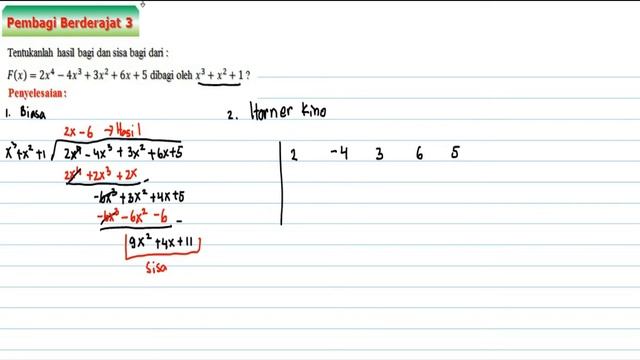 Pembagi Berderajat 3
Tentukanlah hasil bagi dan sisa bagi dari :
F(x) = 2x⁴ − 4x³ + 3x² + 6x + 5 dibagi oleh x³ + x² + 1 ?
Penyelesaian :
1. Biasa
2x − 6 → Hasil
x³ + x² + 1 √ 2x⁴ − 4x³ + 3x² + 6x + 5
2x⁴ + 2x³ + 2x −
−6x³ + 3x² + 4x + 5
−6x³ − 6x² − 6 −
9x² + 4x + 11
sisa
2. Horner Kino
2 −4 3 6 5